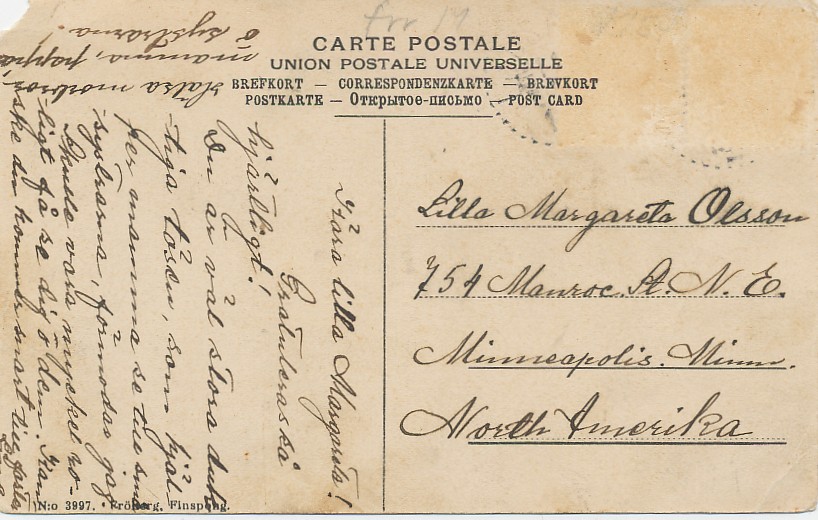 fru M
CARTE POSTALE
UNION POSTALE UNIVERSELLE
BREFKORT — CORRESPONDENZKARTE — BREVKORT
POSTKARTE — Открытое-письмо — POST CARD
Kära lilla Margareta!
Gratuleras så
hjärtligt!
Du är väl stora duk
tiga tösen, som hjäl
per mamma se till små
systrarna, förmodar jag
Skulle vara mycket ro-
ligt få se dig o dem. Kan
ske du kommer snart
Hälsa morbror
mamma, pappa
o systrarna!
Lilla Margareta Olsson
754 Manroc. St. N. E.
Minneapolis. Minn.
North Amerika
N:o 3997. Fröberg, Finspong.